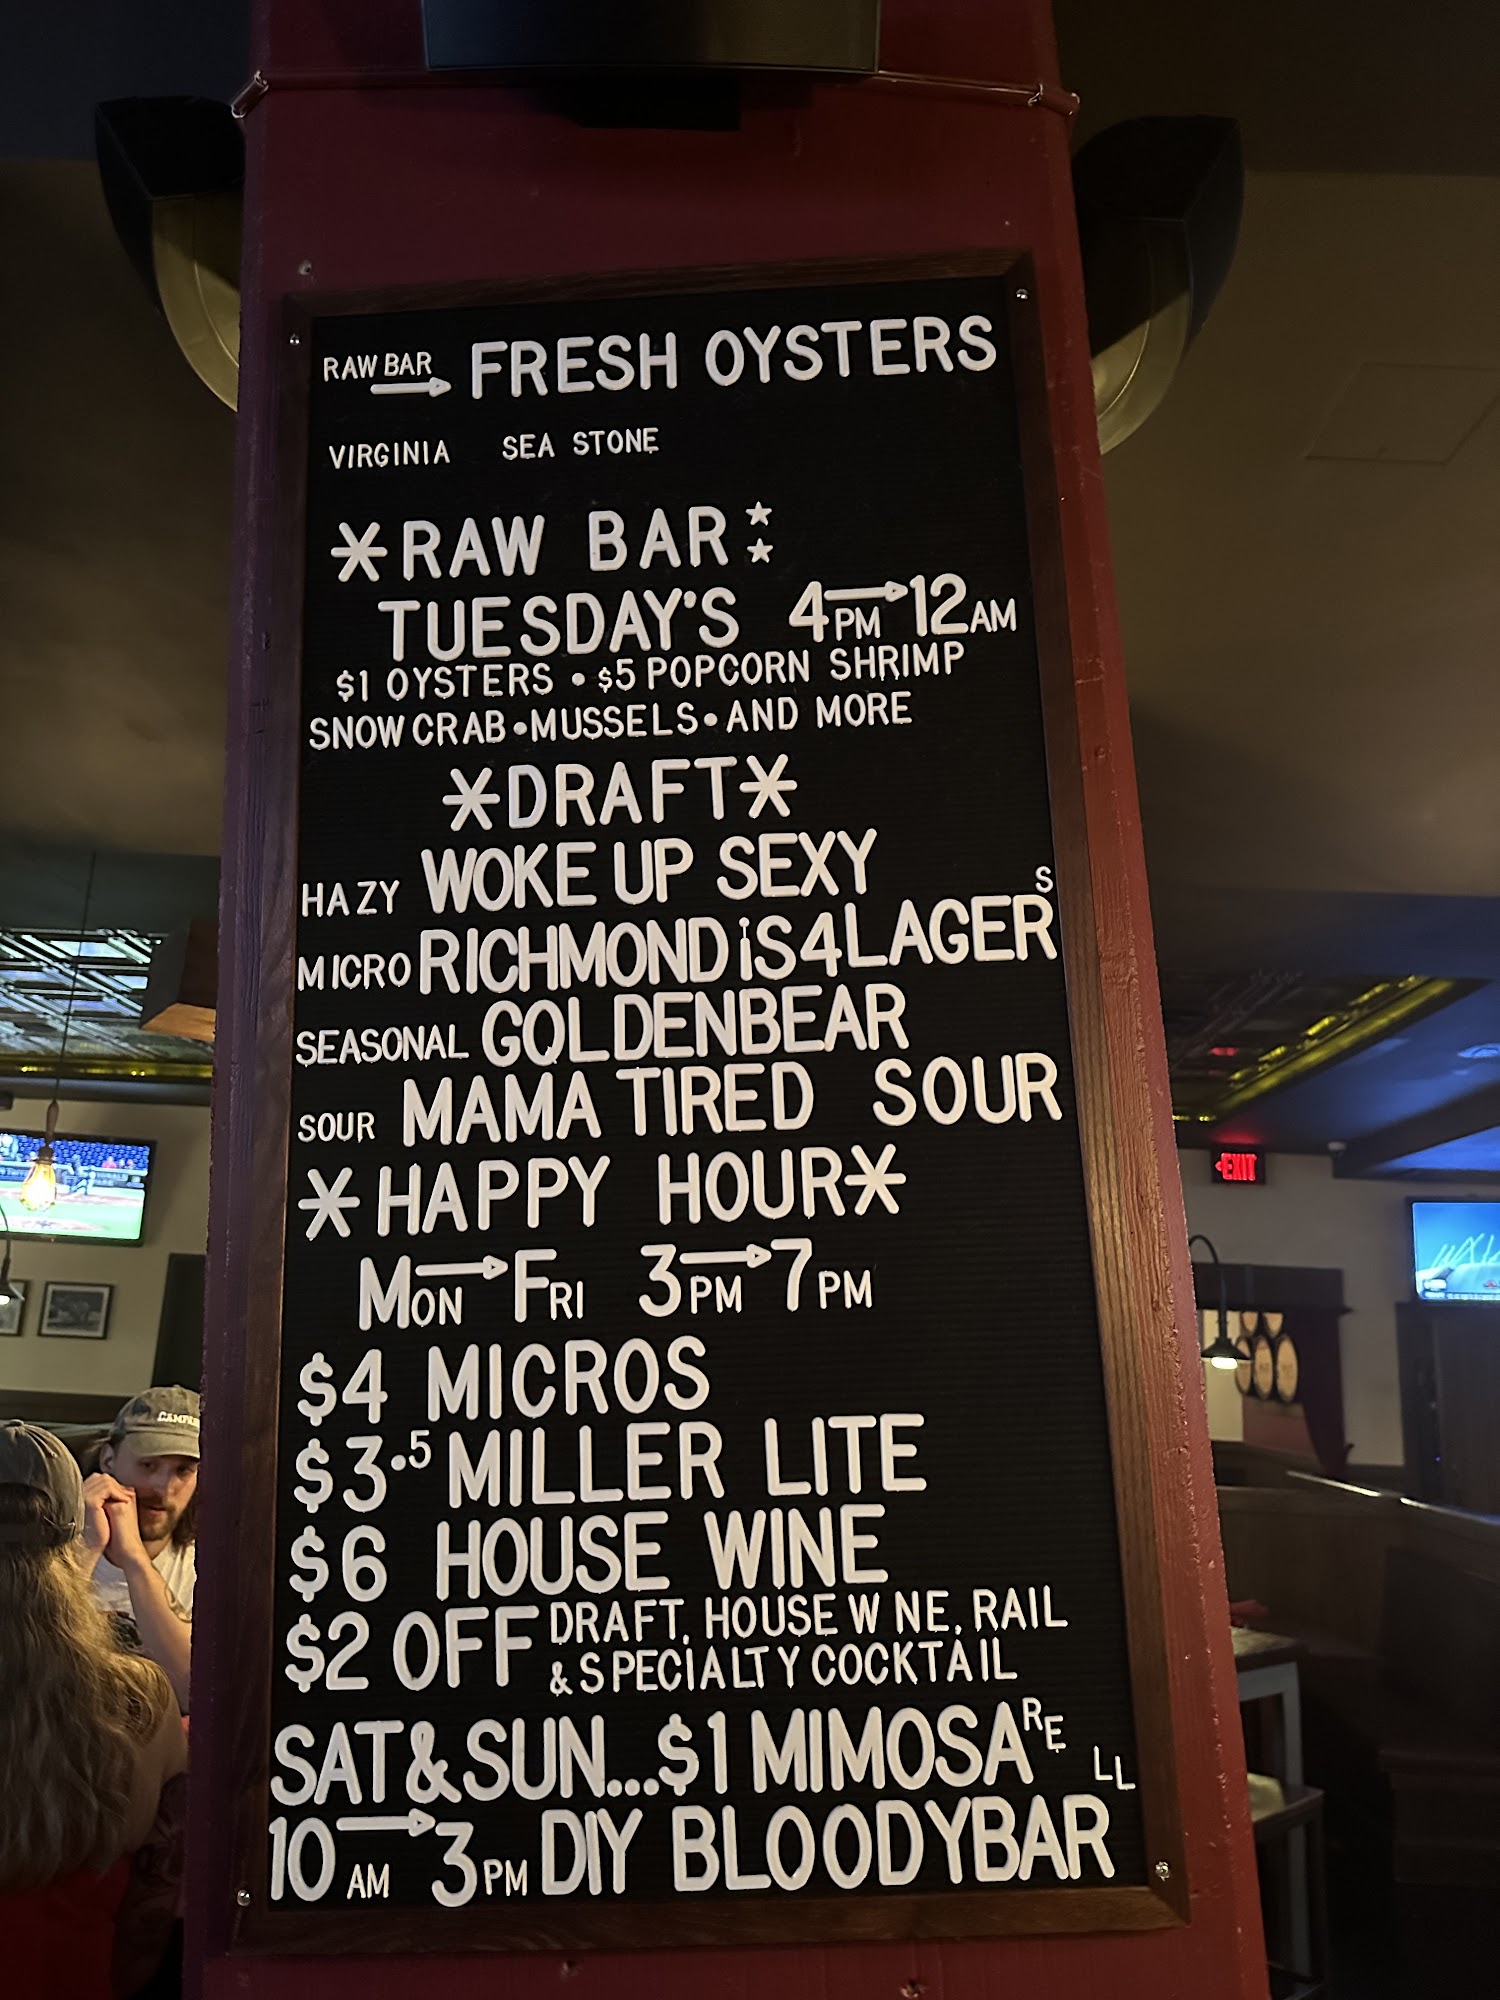 RAW BAR → FRESH OYSTERS
VIRGINIA SEA STONE
*RAW BAR**
TUESDAY'S 4PM→12AM
$1 OYSTERS • $5 POPCORN SHRIMP
SNOW CRAB • MUSSELS • AND MORE
*DRAFT*
HAZY WOKE UP SEXY
MICRO RICHMOND iS 4 LAGERS
SEASONAL GOLDENBEAR
SOUR MAMA TIRED SOUR
*HAPPY HOUR*
MON→FRI 3PM→7PM
$4 MICROS
$3.5 MILLER LITE
$6 HOUSE WINE
$2 OFF DRAFT, HOUSE W NE, RAIL
& SPECIALTY COCKTAIL
SAT&SUN...$1 MIMOSA RE LL
10AM→3PM DIY BLOODYBAR
EXIT